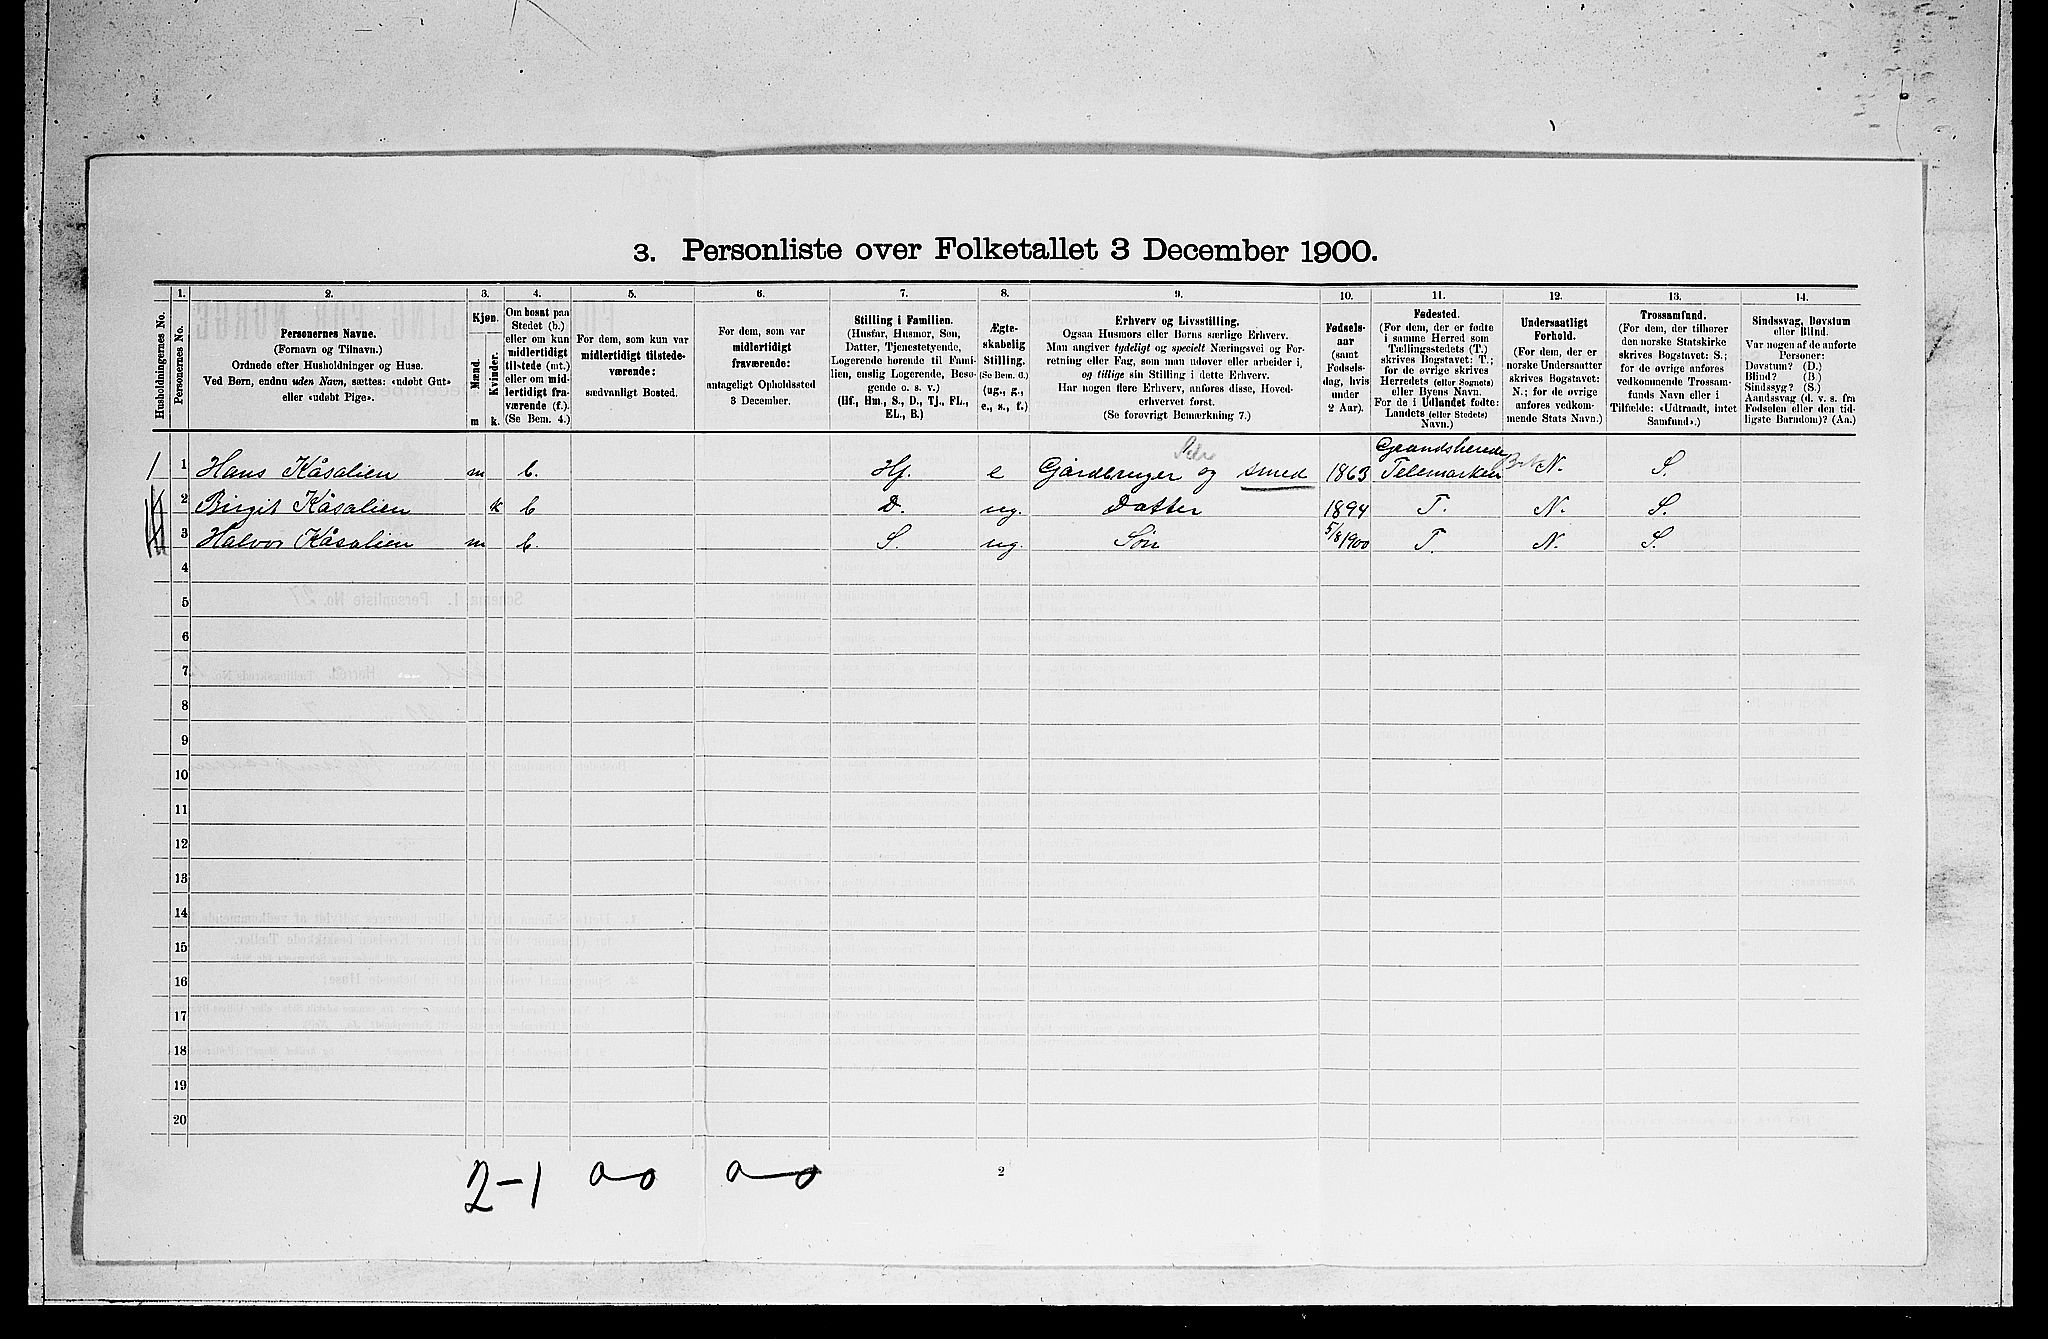 3. Personliste over Folketallet 3 December 1900.
Husholdningernes No.
1.
Personernes No.
2.
Personernes Navne.
(Fornavn og Tilnavn.)
Ordnede efter Husholdninger og Huse.
Ved Børn, endnu uden Navn, sættes: «udøbt Gut»
eller «udøbt Pige».
3.
Kjøn.
Mænd.
Kvinder.
m
k.
4.
Om bosat paa
Stedet (b.)
eller om kun
midlertidigt
tilstede (mt.)
eller om mid-
lertidigt fra-
værende (f.).
(Se Bem. 4.)
5.
For dem, som kun var
midlertidigt tilstede-
værende:
sædvanligt Bosted.
6.
For dem, som var
midlertidigt
fraværende:
antageligt Opholdssted
3 December.
7.
Stilling i Familien.
(Husfar, Husmor, Søn,
Datter, Tjenestetyende,
Logerende hørende til Fami-
lien, enslig Logerende, Besø-
gende o. s. v.)
(Hf., Hm., S., D., Tj., FL.,
EL., B.)
8.
Ægte-
skabelig
Stilling.
(Se Bem. 6.)
(ug., g.,
e., s., f.)
9.
Erhverv og Livsstilling.
Ogsaa Husmors eller Børns særlige Erhverv.
Man angiver tydeligt og specielt Næringsvei og For-
retning eller Fag, som man udøver eller arbeider i,
og tillige sin Stilling i dette Erhverv.
Har nogen flere Erhverv, anføres disse, Hoved-
erhvervet først.
(Se forøvrigt Bemærkning 7.)
10.
Fødsels-
aar
(samt
Fødsels-
dag, hvis
under
2 Aar).
11.
Fødested.
(For dem, der er fødte
i samme Herred som
Tællingsstedets (T.)
skrives Bogstavet: T.;
for de øvrige skrives
Herredets (eller Sognets)
eller Byens Navn.
For de i Udlandet fødte:
Landets (eller Stedets)
Navn.)
12.
Undersaatligt
Forhold.
(For dem, der er
norske Undersaatter
skrives Bogstavet:
N.; for de øvrige
anføres vedkom-
mende Stats Navn.)
13.
Trossamfund.
(For dem, der tilhører
den norske Statskirke
skrives Bogstavet: S.;
for de øvrige anføres
vedkommende Trossam-
funds Navn eller i
Tilfælde: «Udtraadt, intet
Samfund».)
14.
Sindssvag, Døvstum
eller Blind.
Var nogen af de anførte
Personer:
Døvstum? (D.)
Blind? (B.)
Sindssyg? (S.)
Aandssvag (d. v. s. fra
Fødselen eller den tid-
ligste Barndom)? (Aa.)
1 1 Hans Kåsalien m b. Hf. e Gårdbruger og smed 1863 Grandsherred Telemarken N. S.
2 Birgit Kåsalien k b D. ug. Datter 1894 T. N. S.
3 Halvor Kåsalien m b. S. ug. Søn 5/8 1900 T. N. S.
4
5
6
7
8
9
10
11
12
13
14
15
16
17
18
19
20
2-1 0 0 0-0
2